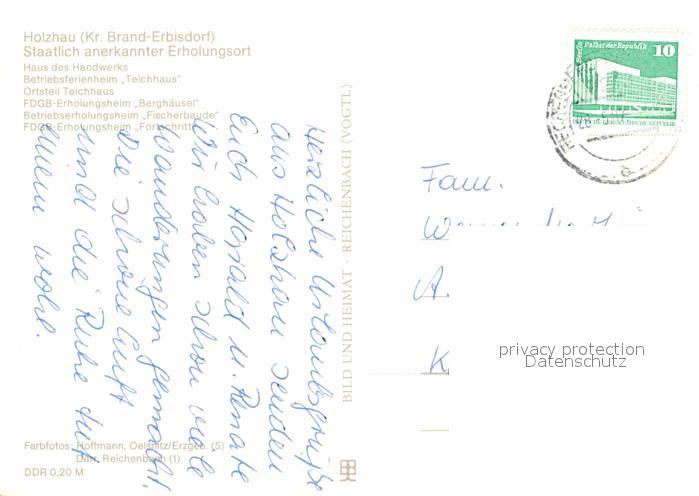 Holzhau (Kr. Brand-Erbisdorf)
Staatlich anerkannter Erholungsort
Haus des Handwerks
Betriebsferienheim „Teichhaus"
Ortsteil Teichhaus
FDGB-Erholungsheim „Berghäusel"
Betriebserholungsheim „Fischerbaude"
FDGB-Erholungsheim „Fortschritt"
Herzliche Urlaubsgrüße
aus Holzhau senden
Euch Harald u. Renate
Wir haben schon viele
Wanderungen gemacht.
Die schöne Luft
und die Ruhe tut
allem wohl.
Farbfotos: Hoffmann, Oelsnitz/Erzgeb. (5)
Darr, Reichenbach (1)
DDR 0,20 M
BILD UND HEIMAT · REICHENBACH (VOGTL)
Berlin Palast der Republik 10
Fam.
A
K
privacy protection
Datenschutz